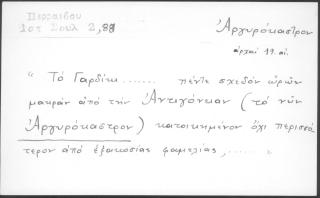 Περραιβου
Ιστ Σουλ 2, 88
Ἀργυρόκαστρον
ἀρχαὶ 19. αἰ.
" Τὸ Γαρδίκι ...... πέντε σχεδὸν ὡρῶν
μακρὰν ἀπὸ τὴν Ἀντιγόνειαν ( τὸ νῦν
Ἀργυρόκαστρον ) κατοικημένον ὄχι περισσό
τερον ἀπὸ ἑξακοσίας φαμελίας, ...... "